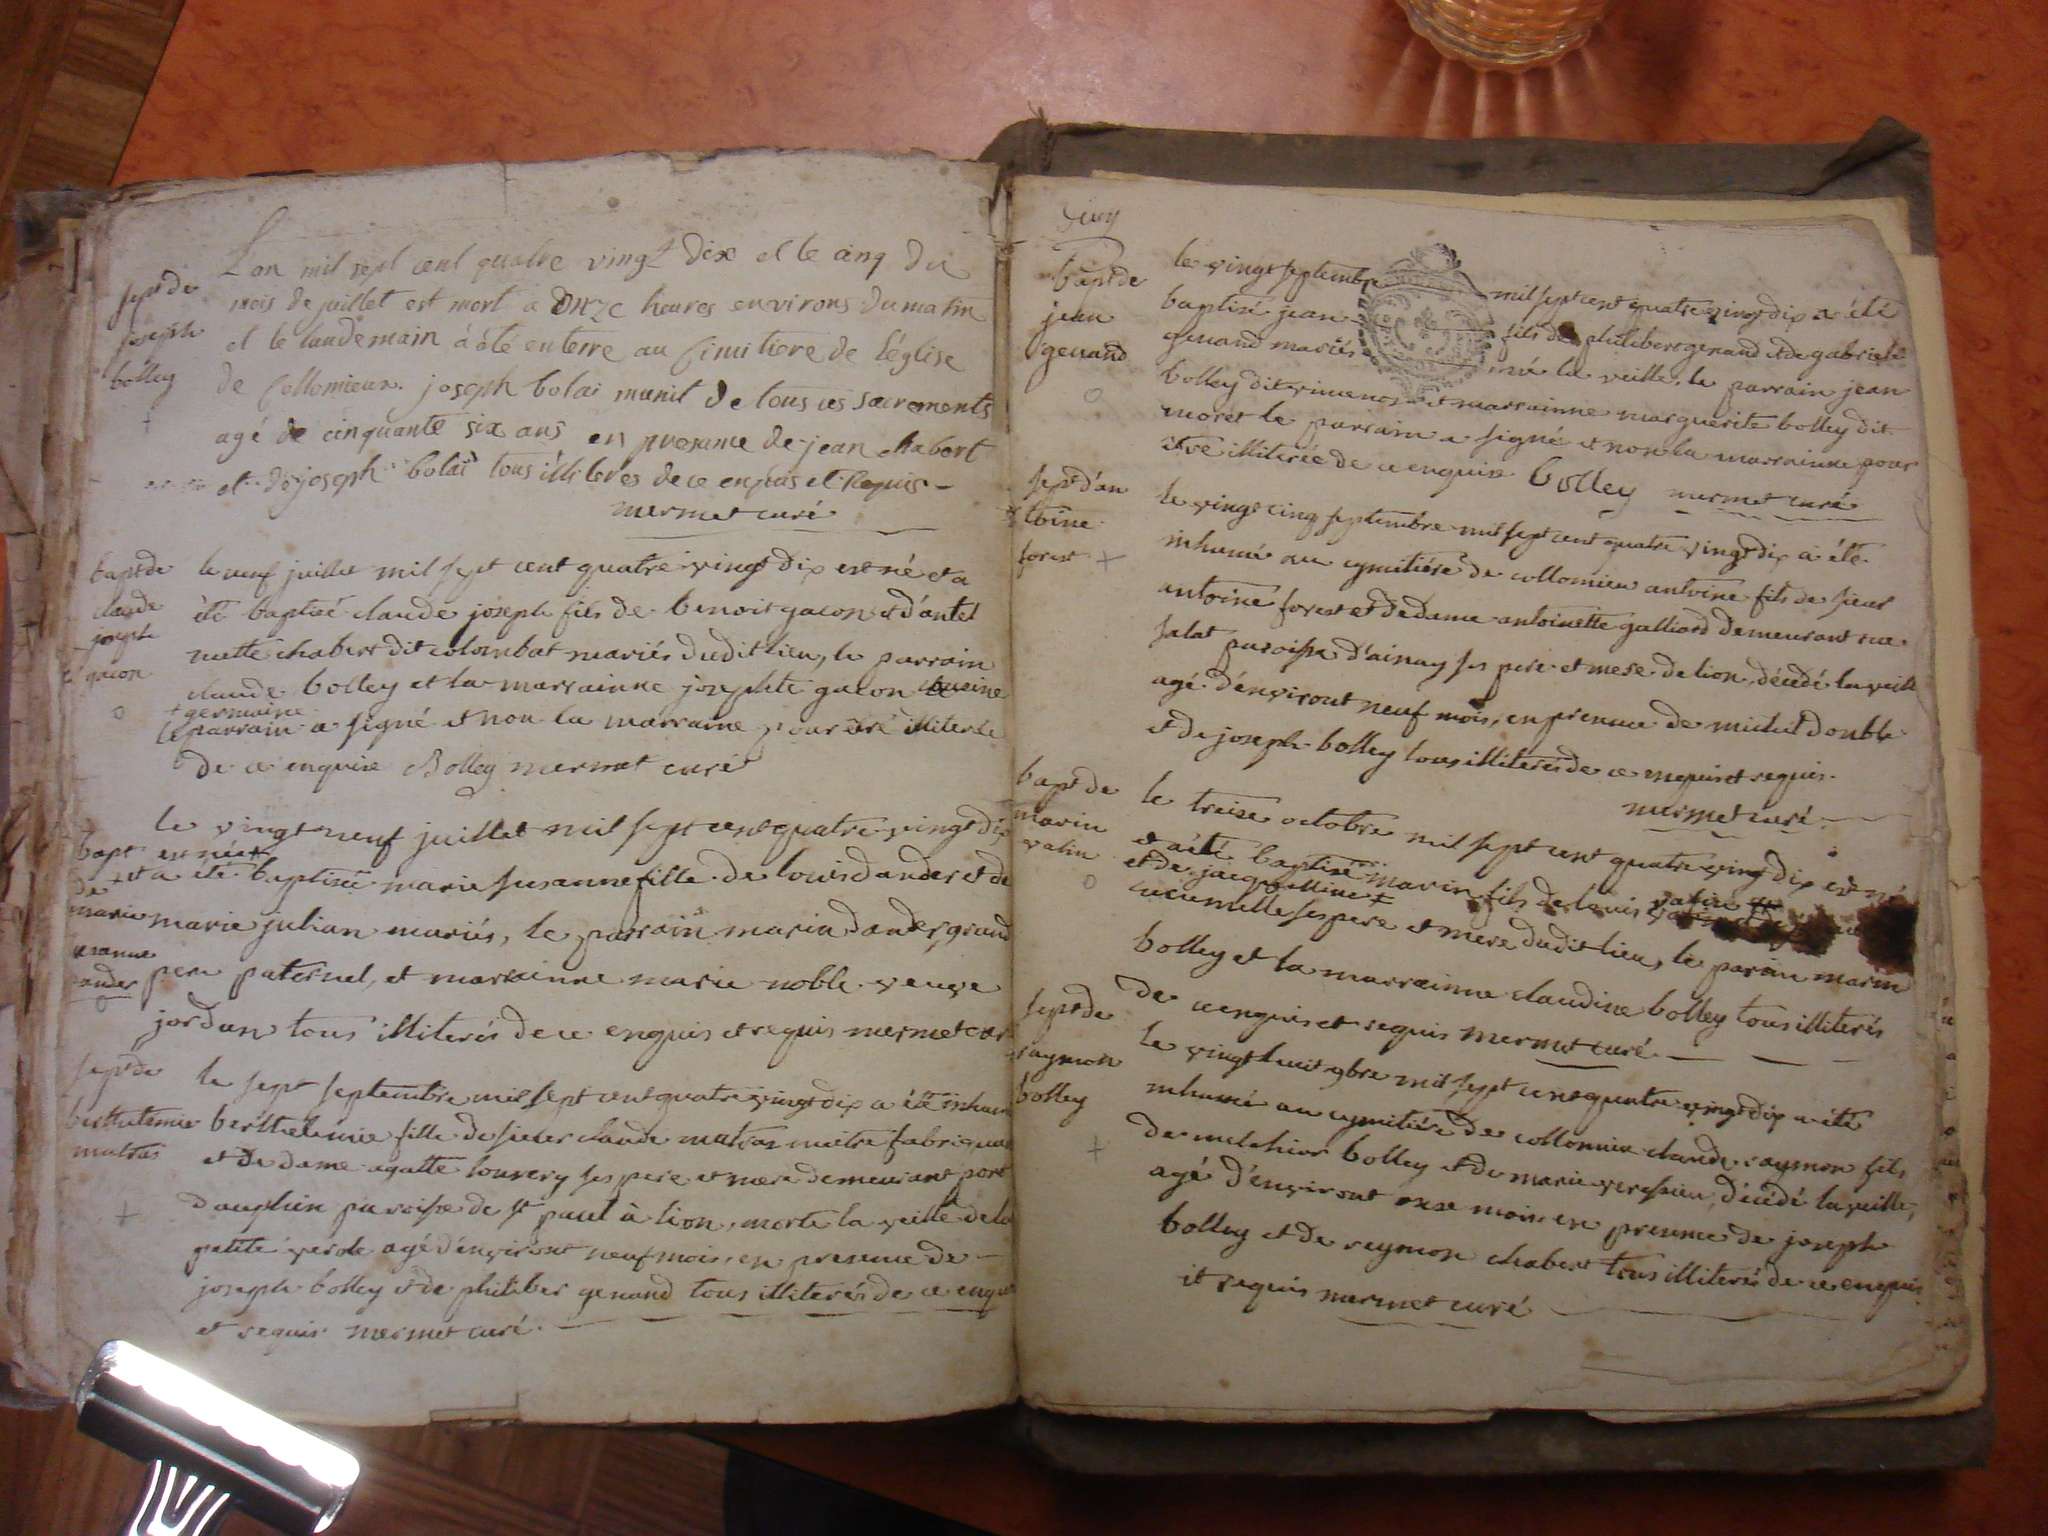 sept de
joseph
bolley
Lan mil sept cent quatre vingt dix et le cinq du
mois de juillet est mort a onze heures environs du matin
et le landemain à été enterre au Cimitiere de Léglise
de Collomieux joseph bolai munit de tous ces sacrements
agé de cinquante six ans en presame de jean chabert
et de joseph bolai tous illiteres de ce enquis et Requis
mermet curé
bapt de
claude
joseph
gacon
le neuf juillet mil sept cent quatre vingt dix est né et a
été baptisé claude joseph fils de benoit gacon et d'antoi
nette chabert dit colombat mariés dudit lieu, le parrain
claude bolley et la marrainne josephte gacon
+ germaine
le parrain a signé et non la marraine pour etre illiterée
de ce enquise Bolley mermet curé
bapt
de
marie
susanne
dander
le vingt neuf juillet mil sept cent quatre vingt dix
est née
et a été baptisée marie susanne fille de louis dander et de
marie julian mariés, le parrain marin dander grand
pere paternel, et marrainne marie noble veuve
jordan tous illiterés de ce enquis et requis mermet cur
sept de
berthelemie
matras
le sept septembre mil sept cent quatre vingt dix a été inhum
berthelémie fille de sieur claude matras maitre fabriquan
et de dame agatte louvery ses pere et mere demeurant port
dauphin paroisse de st paul à lion, morte la veille de la
petite verole agé d'environt neuf mois, en presence de
joseph bolley et de philiber genand tous illiterés de ce enquis
et requis mermet curé
bapt de
jean
genand
le vingt septembre mil sept cent quatre vingt dix a été
baptisé jean fils de philibert genand et de gabriele
genand mariés né la veille, le parrain jean
bolley dit et marrainne marguerite bolley dit
moret le parrain a signé et non la marrainne pour
etre illiterée de ce enquise bolley mermet curé
sept d'an
toine
forest +
le vingt cinq septembre mil sept cent quatre vingt dix a été
inhumé au cymitiére de collomieu antoine fils de sieur
antoine forest et de dame antoinette galliard demeurant rue
salat paroisse d'ainay ses pere et mere de lion, décédé la veille
agé d'environt neuf mois, en presence de michel double
et de joseph bolley tous illiterés de ce enquis et requis
mermet curé
bapt de
marin
vatin
le treise octobre mil sept cent quatre vingt dix est né
et a été baptisé marin fils de louis vatin
et de jacqueline
cucumelle ses pere et mere dudit lieu, le parain marin
bolley et la marrainne claudine bolley tous illiterés
de ce enquis et requis mermet curé
sept de
raymon
bolley
le vingt huit 9bre mil sept cent quatre vingt dix a été
inhumé au cymitiére de collomieu claude raymon fils
de melchior bolley et de marie versieu, décédé la veille,
agé d'environt onse mois en presence de joseph
bolley et de reymon chabert tous illiterés de ce enquis
et requis mermet curé